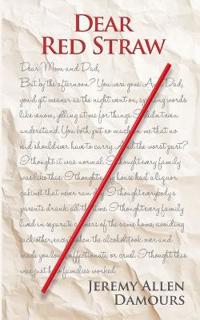 DEAR
RED STRAW
Dear Mom and Dad,
But by the afternoon? You were gone. And Dad,
you'd get meaner as the night went on, spewing words
like venom, yelling at me for things I didn't even
understand. You both put so much on me that no
kid should ever have to carry. And the worst part?
I thought it was normal. I thought every family
was like this. I thought every home had a liquor
cabinet that never ran dry. I thought everybody's
parents drank all the time. I thought every family
lived in separate corners of the same home, avoiding
each other, except when the alcohol took over and
made you loud, affectionate, or cruel. I thought this
was just how families worked.
JEREMY ALLEN
DAMOURS